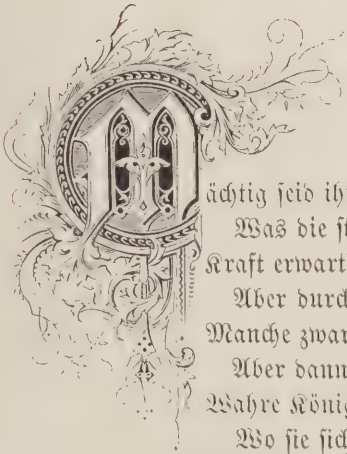 Mächtig seid ih
Was die st
Kraft erwart
Aber durch
Manche zwar
Aber dann
Wahre König
Wo sie sich